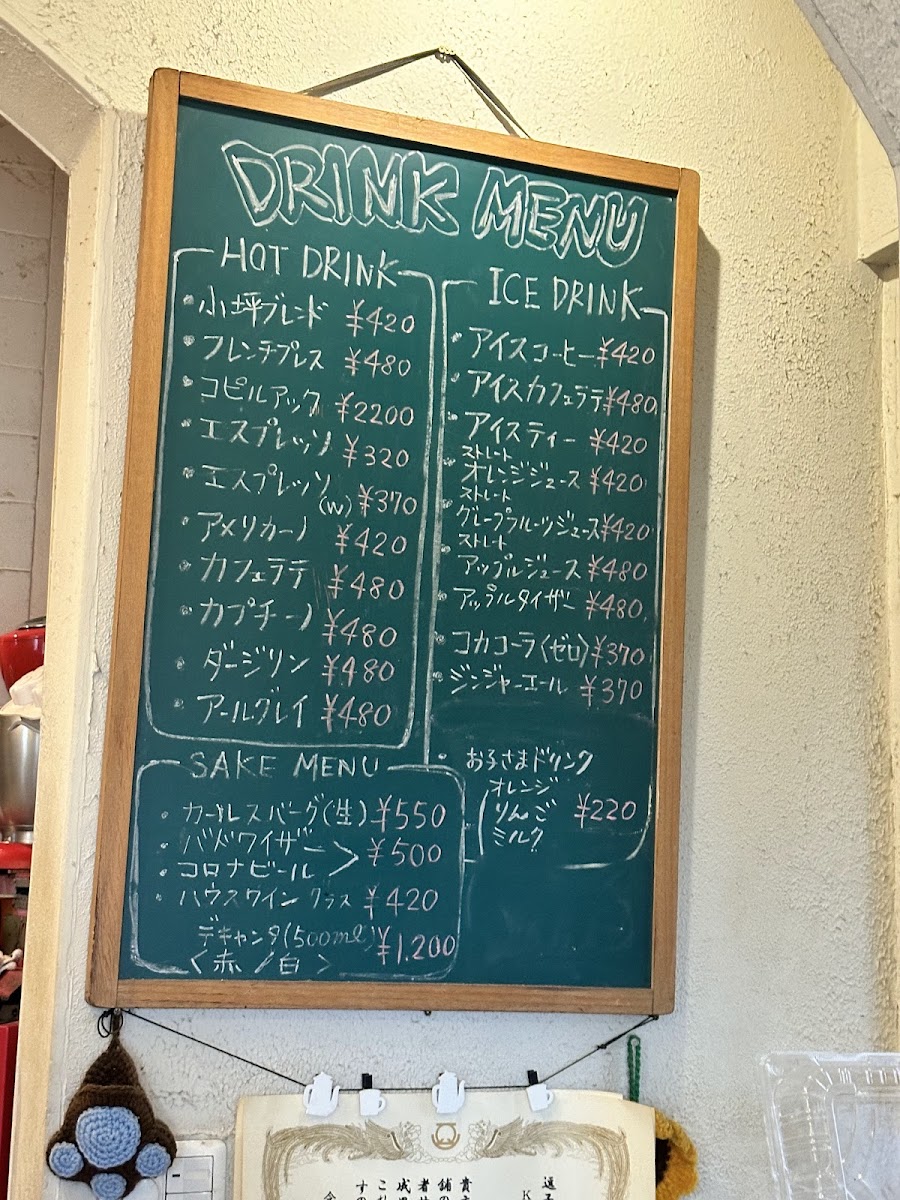 DRINK MENU
HOT DRINK
・小坪ブレンド ¥420
・フレンチプレス ¥480
・コピルアック ¥2200
・エスプレッソ ¥320
・エスプレッソ
(W) ¥370
・アメリカーノ ¥420
・カフェラテ ¥480
・カプチーノ ¥480
・ダージリン ¥480
・アールグレイ ¥480
ICE DRINK
・アイスコーヒー ¥420
・アイスカフェラテ ¥480
・アイスティー ¥420
ストレート
・オレンジジュース ¥420
ストレート
・グレープフルーツジュース ¥420
ストレート
・アップルジュース ¥480
・アップルタイザー ¥480
・コカコーラ(ゼロ) ¥370
・ジンジャーエール ¥370
・お子さまドリンク
オレンジ
りんご ¥220
ミルク
SAKE MENU
・カールスバーグ(生) ¥550
・バドワイザー
・コロナビール > ¥500
・ハウスワイン グラス ¥420
デキャンタ(500ml) ¥1.200
<赤/白>